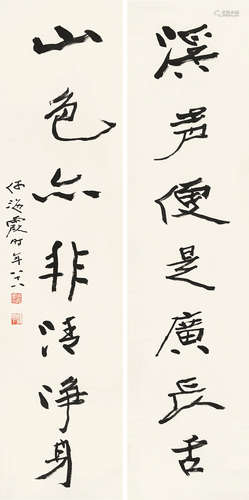 溪声便是廣長舌
山色亦非清淨身
何海霞时年八十八